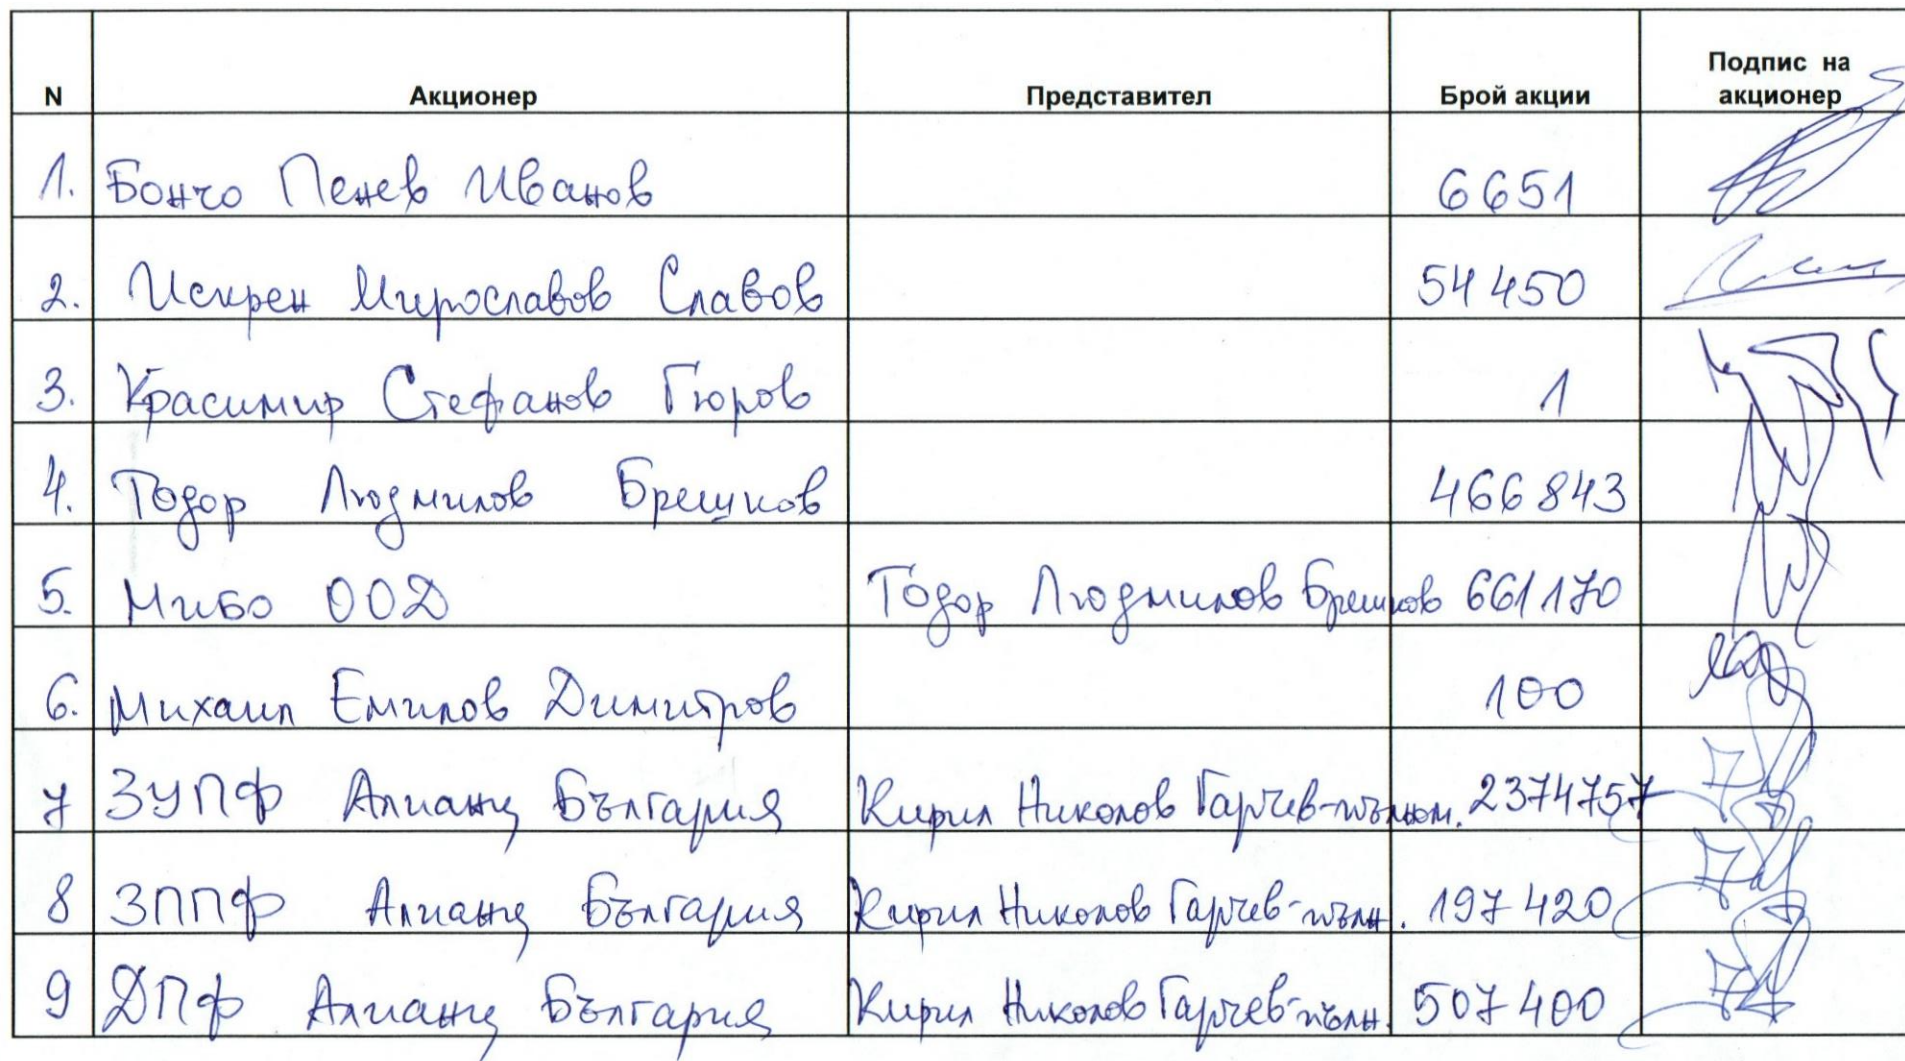 N Акционер Представител Брой акции Подпис на акционер
1. Бончо Пенев Иванов 6651
2. Искрен Мирославов Славов 54450
3. Красимир Стефанов Гюров 1
4. Тодор Людмилов Брешков 466843
5. Мибо ООД Тодор Людмилов Брешков 661170
6. Михаил Емилов Димитров 100
7 ЗУПФ Алианц България Кирил Николов Гарчев-пълном. 2374757
8 ЗППФ Алианц България Кирил Николов Гарчев-пълн. 197420
9 ДПФ Алианц България Кирил Николов Гарчев-пълн. 507400